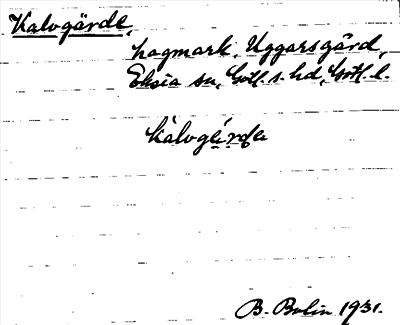 Kalvgärde,
hagmark, Uggarsgård,
Eksta sn, Gotl. s. hd, Gotl. l.
kalvgẹrdẹ
B. Bolin 1931.